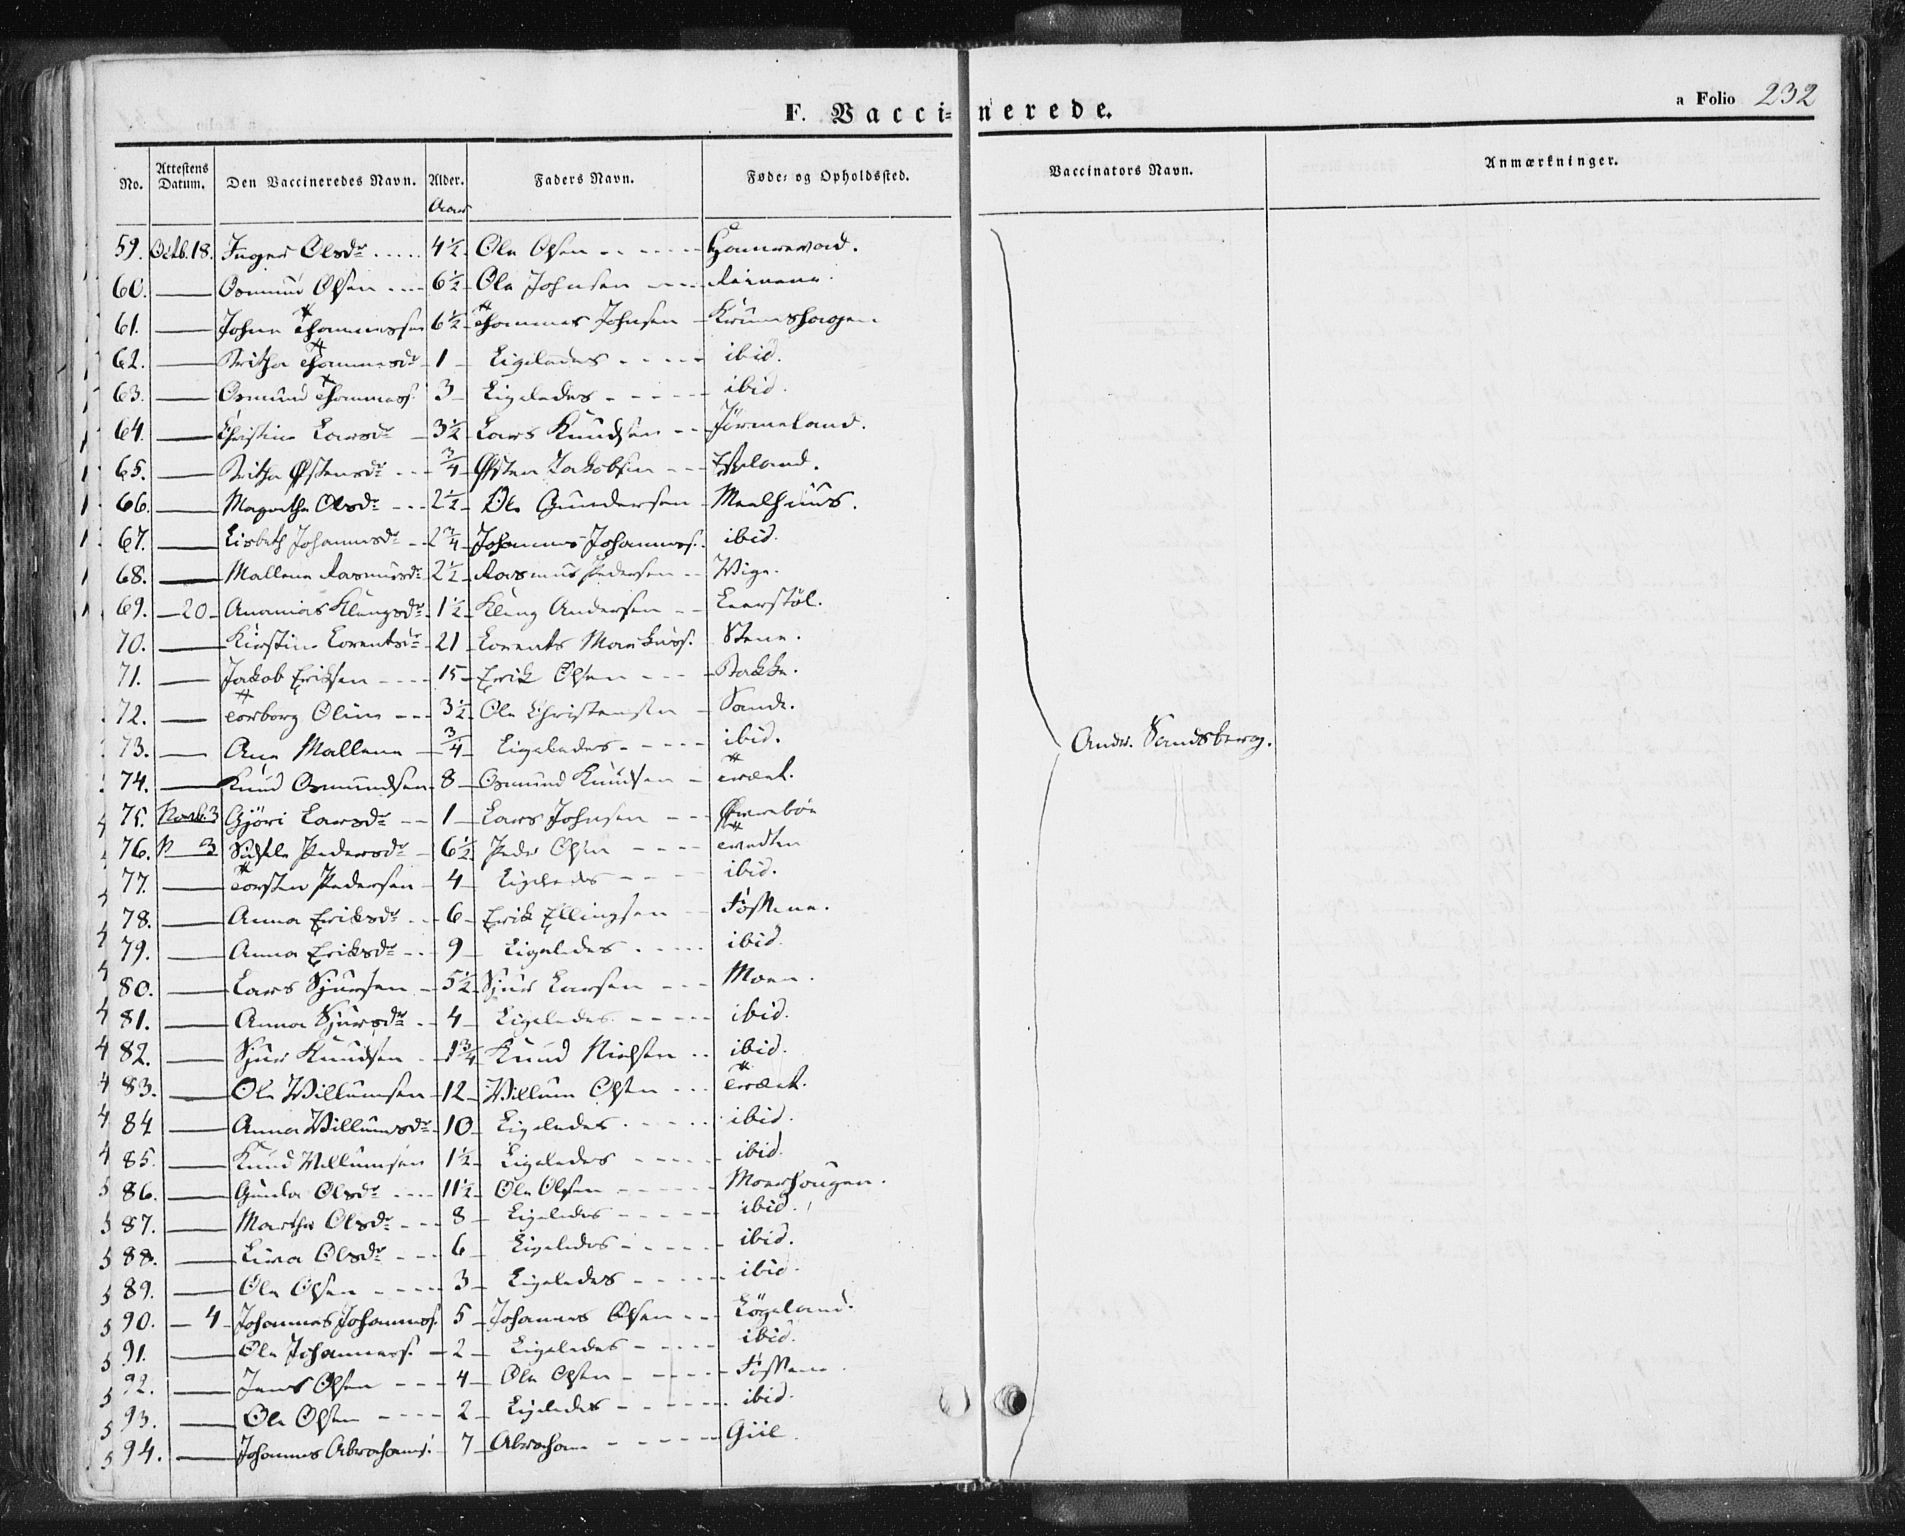 F. Vaccinerede.
a Folio 232
No. Attestens Datum. Den Vaccineredes Navn. Alder. Faders Navn. Føde- og Opholdssted. Vaccinators Navn. Anmærkninger.
Aar
59. Octb. 18. Inger Olsdr 4½ Ole Olsen
60. Osmund Olsen 6½ Ole Johnsen
61. Johne Thommessen 6½ Thommes Johnsen Krunshagen
62. Britha Thommesdr 1 Ligeledes ibid.
63. Osmund Thommess. 3 Ligeledes ibid.
64. Christine Larsdr 3½ Lars Knudsen Jörmeland.
65. Britha Østensdr ¾ Østen Jakobsen
66. Magrethe Olsdr 2½ Ole Gundersen Meelhuus.
67. Lisbeth Johannesdr 2¾ Johannes Johanness. ibid.
68. Mallene Rasmusdr 2½ Rasmus Pedersen Vige.
69. 20 Ananias Klungsdr 1½ Kling Andersen Leerstöl.
70. Kirstine Lorentsdr 21 Lorents Markuss. Stene.
71. Jakob Eriksen 15 Erik Olsen Bakke.
72. Torborg Oline 3½ Ole Christensen Sande.
73. Ane Mallene ¾ Ligeledes ibid.
74. Knud Osmundsen 8 Osmund Knudsen Træet.
Andr. Sandsberg.
75. Novb. 3 Gjöri Larsdr 1 Lars Johnsen
76. N 3 Sidsele Pedersdr 6½ Peder Olsen Tvedten
77. Torsten Pedersen 4 Ligeledes ibid.
78. Anna Eriksdr 6 Erik Ellingsen Fossene.
79. Anna Eriksdr 9 Ligeledes ibid.
80. Lars Sjursen 5½ Sjur Larsen Moen.
81. Anna Sjursdr 4 Ligeledes ibid.
82. Sjur Knudsen 1¾ Knud Nielsen ibid.
83. Ole Villumsen 12 Villum Olsen Træet.
84 Anna Villumsdr 10 Ligeledes ibid.
85. Knud Villumsen 1½ Ligeledes ibid.
86. Gunla Olsdr 11½ Ole Olsen Moerhougen.
87. Marthe Olsdr 8 Ligeledes ibid.
88. Liva Olsdr 6 Ligeledes ibid.
89. Ole Olsen 3 Ligeledes ibid.
90. 4 Johannes Johanness. 5 Johannes Olsen Lögeland.
91. Ole Johanness. 2 Ligeledes ibid.
92. Jens Olsen 4 Ole Olsen Fossene
93. Ole Olsen 2 Ligeledes ibid.
94. Johannes Abrahams. 7 Abraham Giil